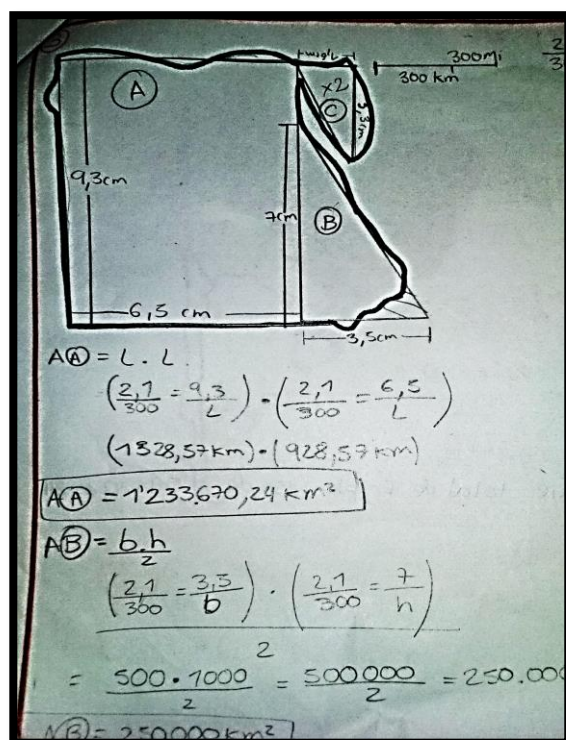 A
1,9cm
x2
C
3,3cm
300Mi
300 km
2
3
9,3cm
7cm
B
6,5 cm
3,5cm
A(A) = L . L
(2,1/300 = 9,3/L) · (2,1/300 = 6,5/L)
(1328,57km) · (928,57km)
A(A) = 1'233.670,24 km²
A(B) = b.h/2
(2,1/300 = 3,5/b) · (2,1/300 = 7/h)
2
= 500·1000/2 = 500000/2 = 250.000
A(B) = 250000km²